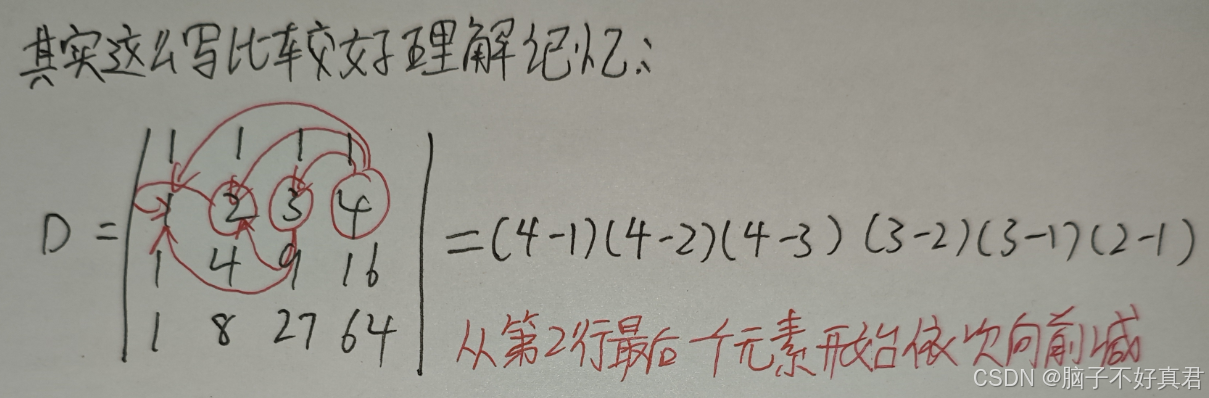 其实这么写比较好理解记忆:
1 1 1 1
1 2 3 4
D = =(4-1)(4-2)(4-3)(3-2)(3-1)(2-1)
1 4 9 16
1 8 27 64
从第2行最后一个元素开始依次向前减
CSDN @脑子不好真君